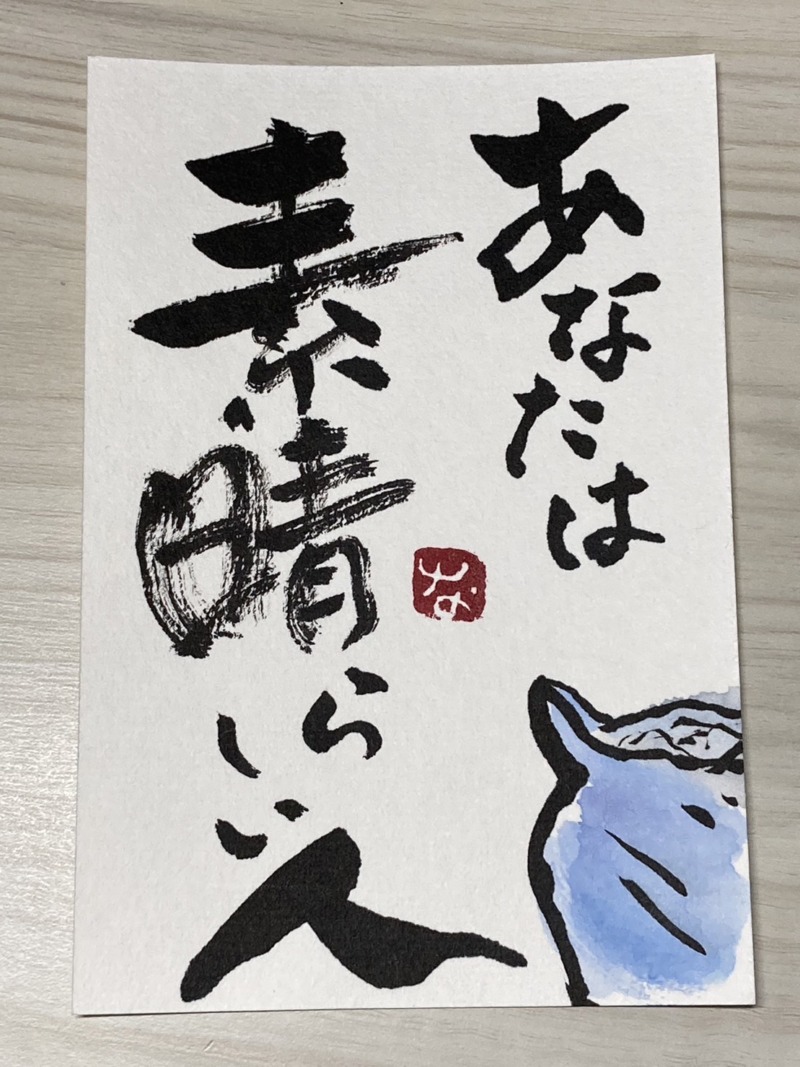 あなたは
素晴
らしい
人